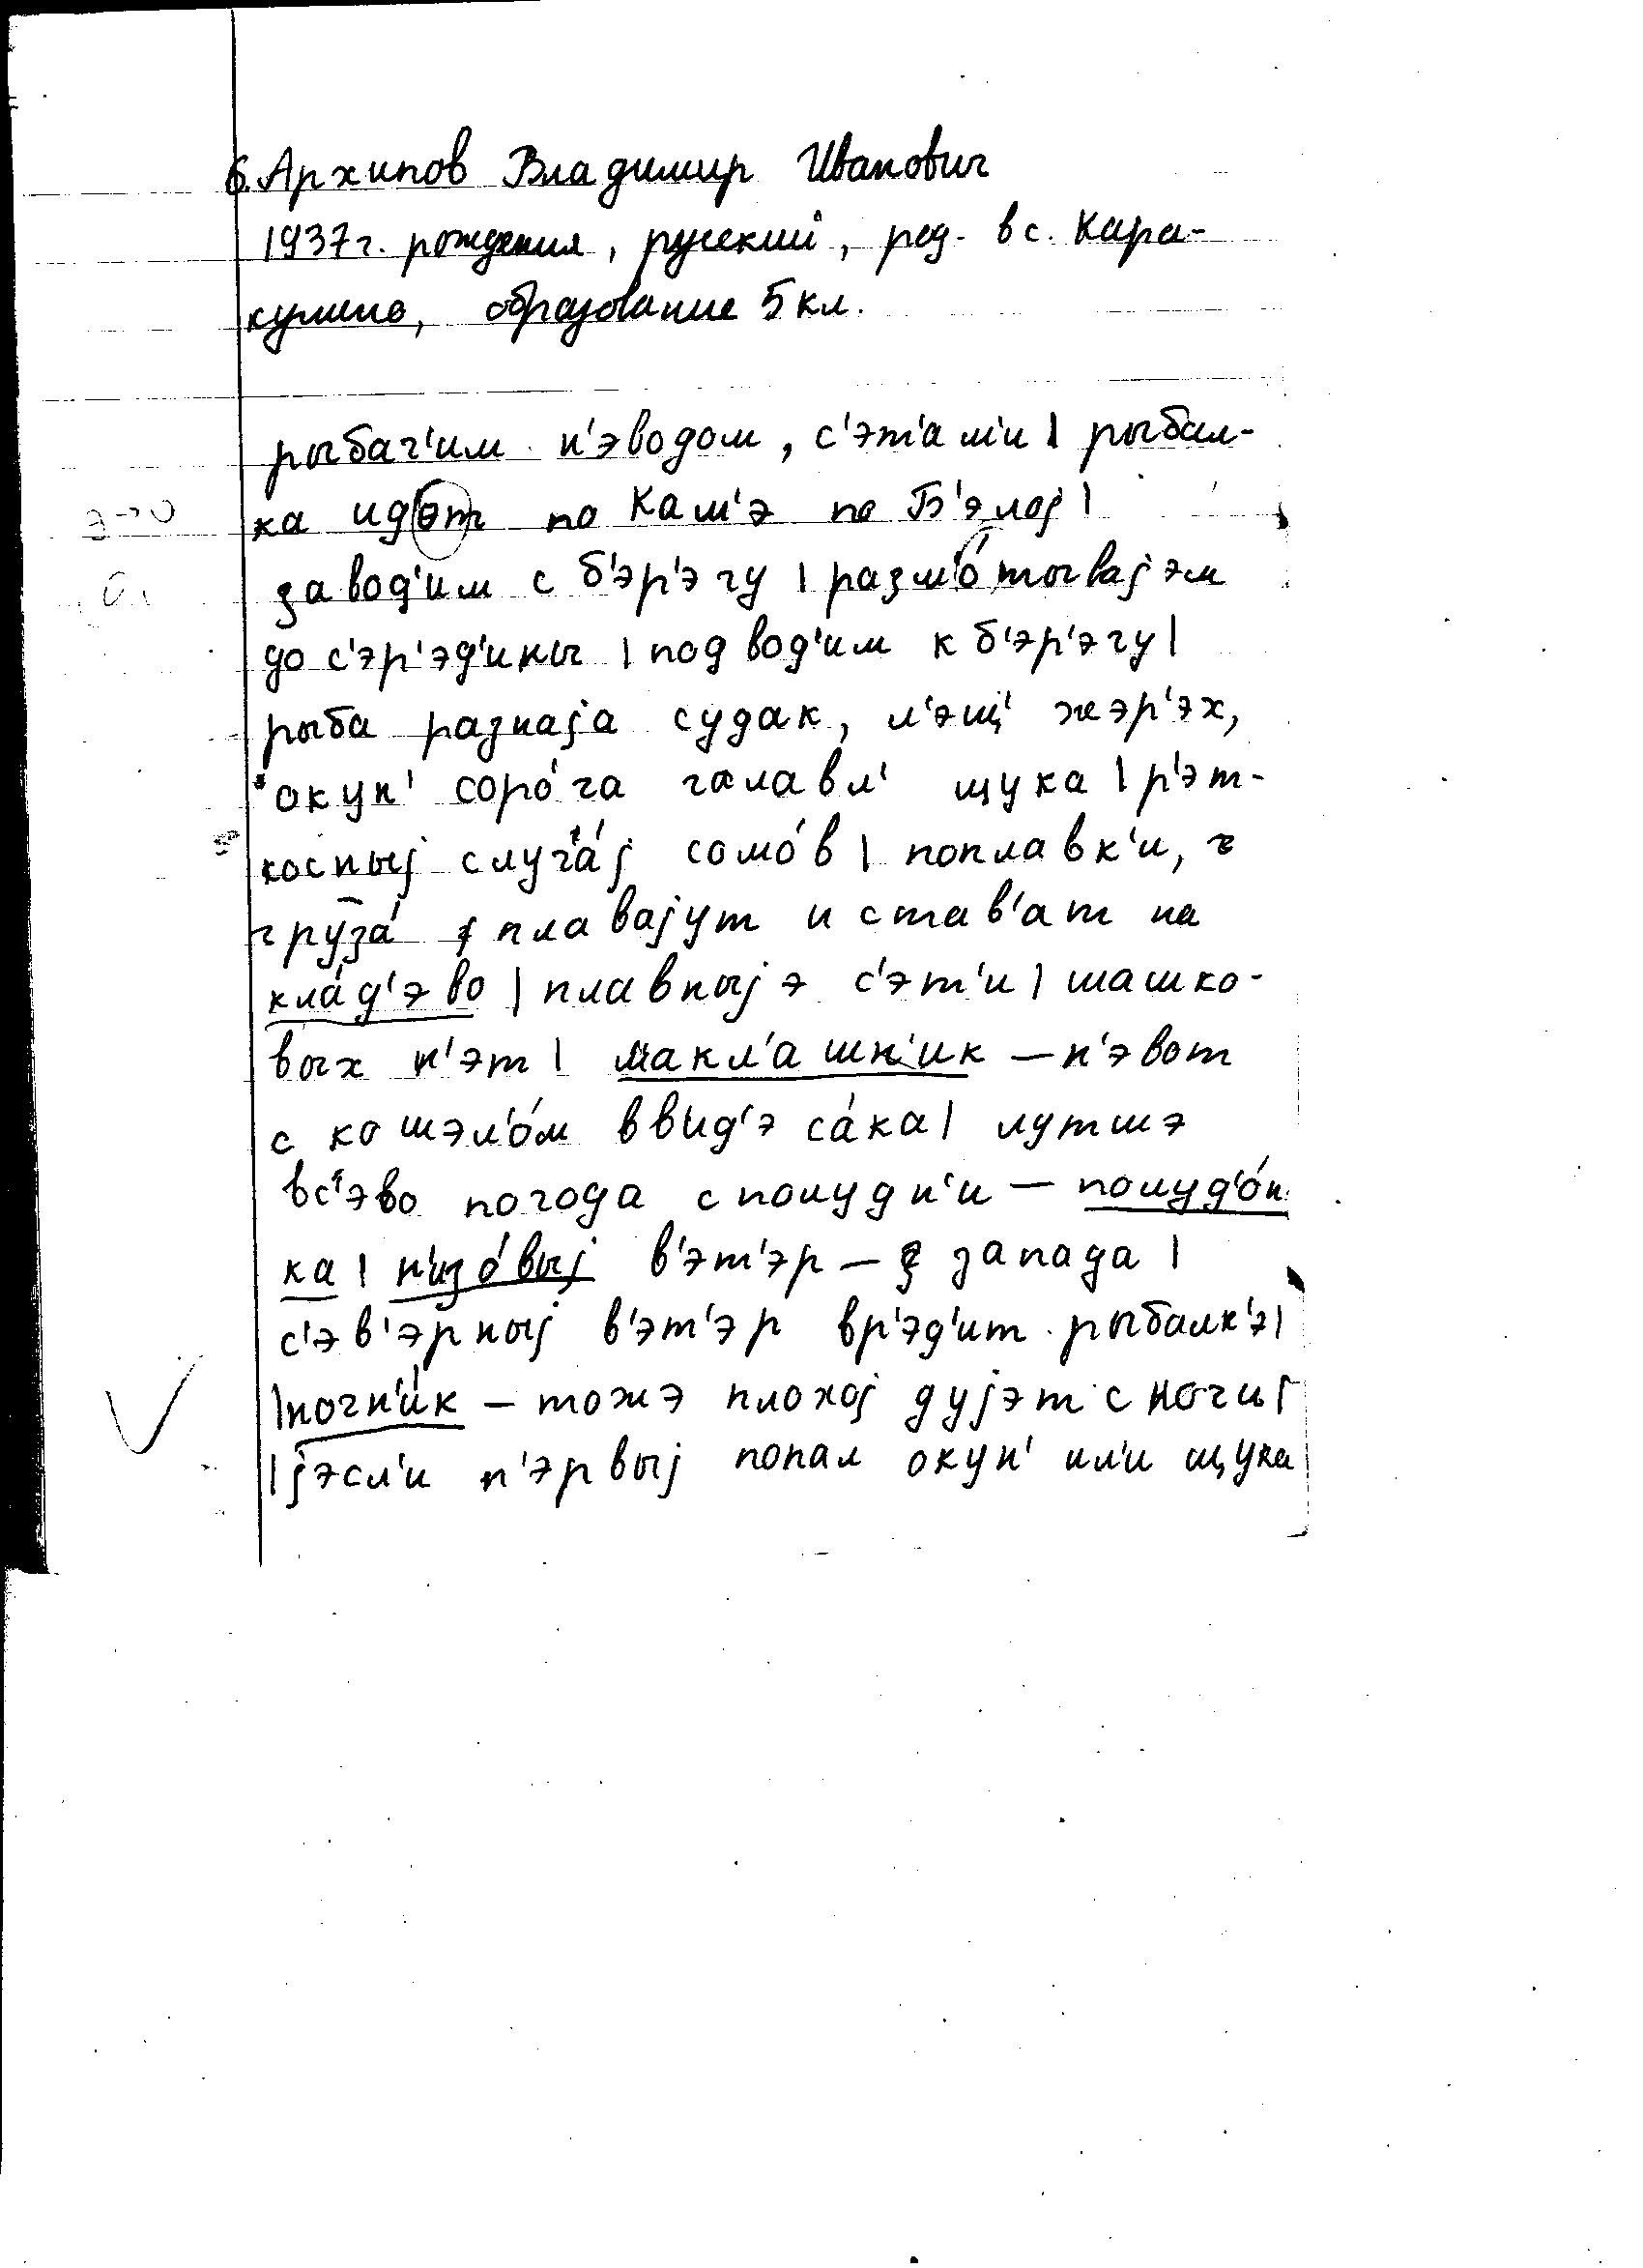 6. Архипов Владимир Иванович
1937 г. рождения, русский, род. в с. Кара-
кулино, образование 5 кл.
рыбач'им н'эводом, с'эт'ам'и | рыбал-
э→о
ка идэт по Кам'э по Б'элој |
завод'им с б'эр'эгу | разм'о́тывајэм
до с'эр'эд'ины | подвод'им к б'эр'эгу |
рыба разнаја судак, л'эщ' жэр'эх,
окун' соро́га галавл' щука | р'эт-
косныј случа́ј сомо́в | поплавк'и,
груза́ плавајут и став'ат на
кла́д'эво | плавныјэ с'эт'и | шашко-
вых н'эт | макл'ашн'ик – н'эвот
с кошэл'о́м в вид'э са́ка | лутшэ
вс'эво погода с полудн'и – полуд'о́н
ка | н'изо́выј в'эт'эр – з запада |
с'эв'эрныј в'эт'эр вр'эд'ит рыбалк'э |
| ночн'и́к – тожэ плохој дујэт с ночи |
| јэсл'и п'эрвыј попал окун' ил'и щука